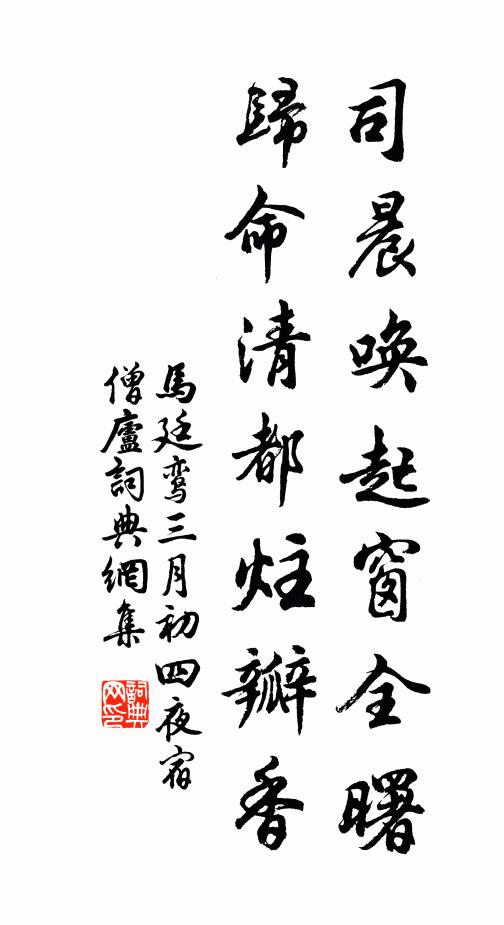 司晨喚起窗全曙
歸命清都炷瓣香
馬廷鸞三月初四夜宿
僧廬詞典網集
詞典網印